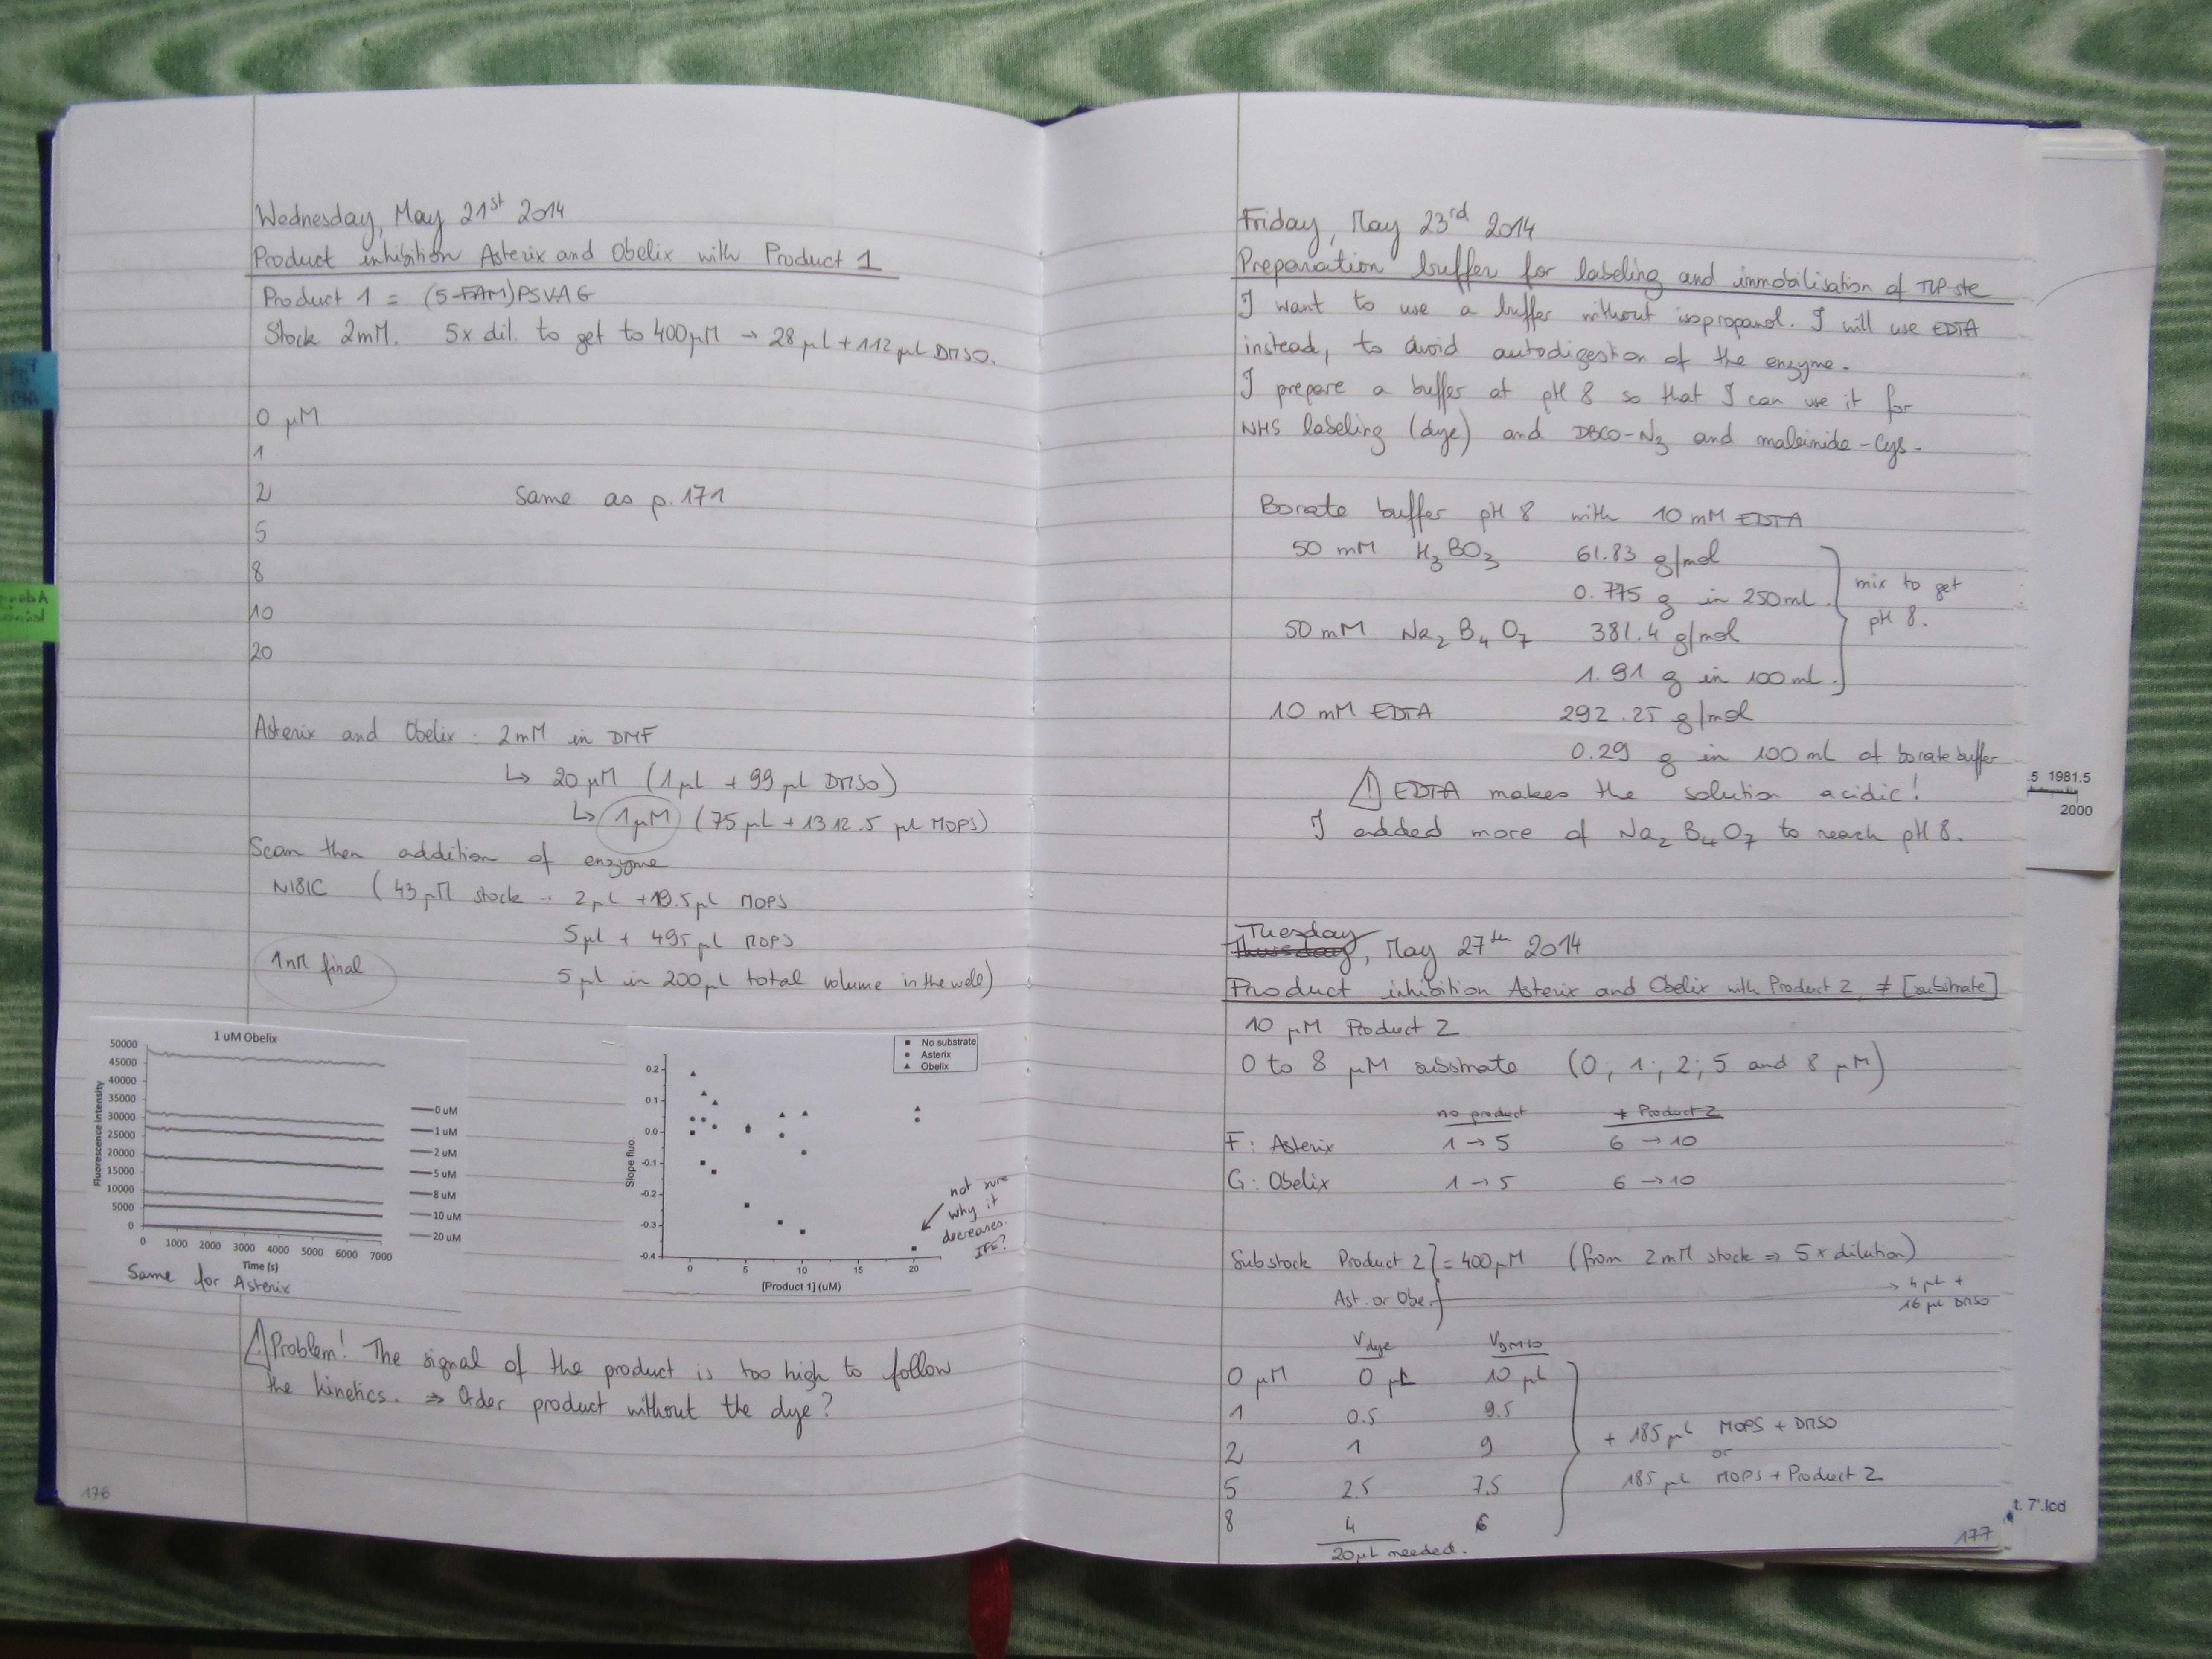 Wednesday, May 21st 2014
Product inhibition Asterix and Obelix with Product 1
Product 1 = (5-FAM)PSVAG
Stock 2mM. 5x dil. to get to 400µM → 28 µL + 112 µL DMSO.
0 µM
1
2
same as p. 171
5
8
10
20
Asterix and Obelix : 2mM in DMF
↳ 20 µM (1µL + 99 µL DMSO)
↳ 1µM (75 µL + 1312.5 µL MOPS)
Scan then addition of enzyme
N181C (43 µM stock → 2µL + 19.5µL MOPS
5µL + 495 µL MOPS
1nM final
5 µL in 200µL total volume in the well)
1 uM Obelix
50000
45000
40000
35000
30000
25000
20000
15000
10000
5000
0
Fluorescence intensity
0 1000 2000 3000 4000 5000 6000 7000
Time (s)
0 uM
1 uM
2 uM
5 uM
8 uM
10 uM
20 uM
Same for Asterix
No substrate
Asterix
Obelix
0.2
0.1
0.0
-0.1
-0.2
-0.3
-0.4
Slope fluo.
0 5 10 15 20
[Product 1] (uM)
not sure
why it
decreases.
IFE?
⚠ Problem! The signal of the product is too high to follow
the kinetics. ⇒ Order product without the dye?
176
Friday, May 23rd 2014
Preparation buffer for labeling and immobilisation of
I want to use a buffer without isopropanol. I will use EDTA
instead, to avoid autodigestion of the enzyme.
I prepare a buffer at pH 8 so that I can use it for
NHS labeling (dye) and DBCO-N3 and maleimide-Cys.
Borate buffer pH 8 with 10 mM EDTA
50 mM H3BO3 61.83 g/mol
0.775 g in 250mL.
mix to get
pH 8.
50 mM Na2B4O7 381.4 g/mol
1.91 g in 100mL.
10 mM EDTA 292.25 g/mol
0.29 g in 100 mL of borate buffer
⚠ EDTA makes the solution acidic!
I added more of Na2B4O7 to reach pH 8.
Tuesday
Thursday, May 27th 2014
Product inhibition Asterix and Obelix with Product 2, ≠ [substrate]
10 µM Product 2
0 to 8 µM substrate (0; 1; 2; 5 and 8 µM)
no product + Product 2
F: Asterix 1 → 5 6 → 10
G: Obelix 1 → 5 6 → 10
Substock Product 2 = 400µM (from 2mM stock ⇒ 5 x dilution)
Ast. or Obe. → 4 µL +
16 µL DMSO
Vdye VDMSO
0 µM 0 µL 10 µL
1 0.5 9.5
2 1 9
5 2.5 7.5
8 4 6
+ 185 µL MOPS + DMSO
or
185 µL MOPS + Product 2
20µL needed.
177
.5 1981.5
2000
t. 7'.lcd